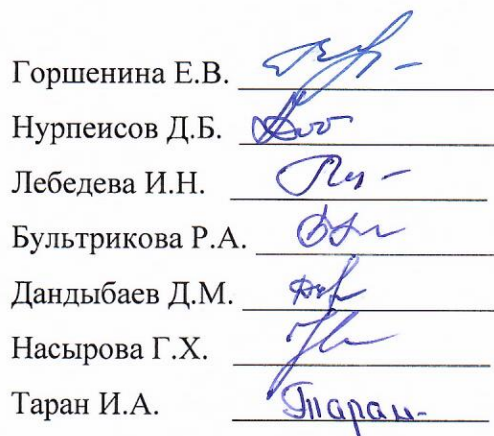 Горшенина Е.В.
Нурпеисов Д.Б.
Лебедева И.Н.
Бультрикова Р.А.
Дандыбаев Д.М.
Насырова Г.Х.
Таран И.А. Таран